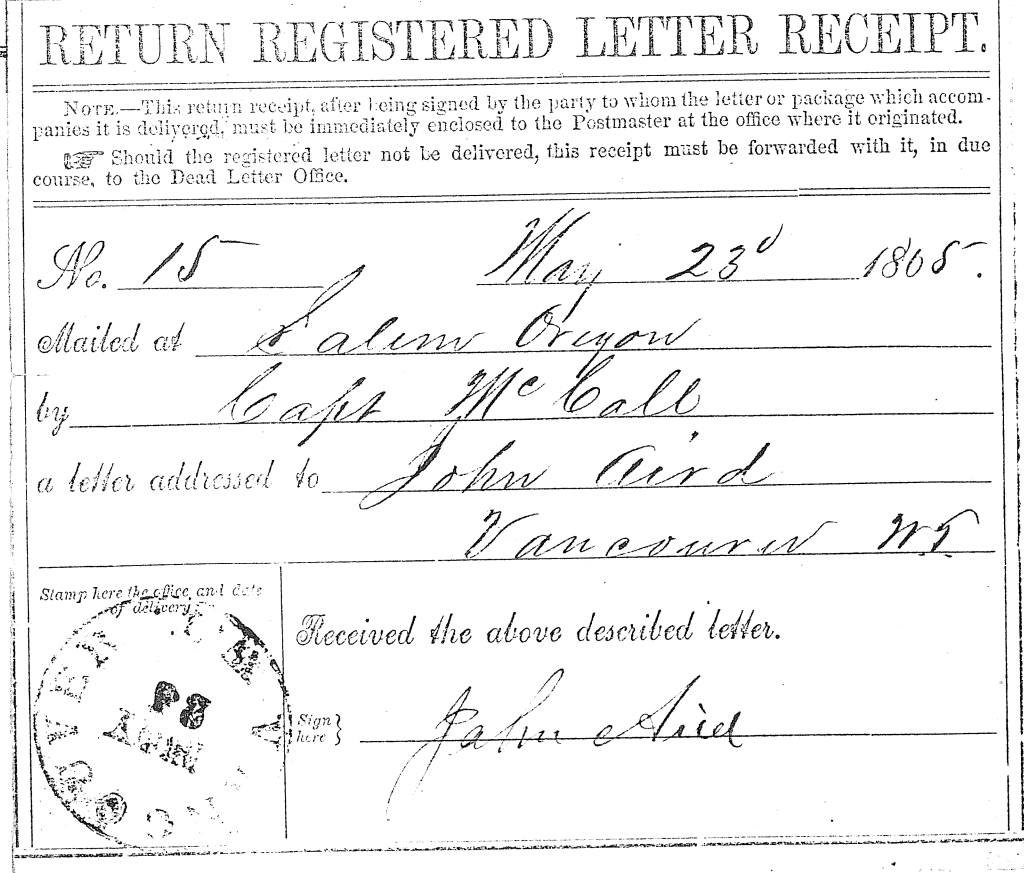 RETURN REGISTERED LETTER RECEIPT.
NOTE.—This return receipt, after being signed by the party to whom the letter or package which accom-
panies it is delivered, must be immediately enclosed to the Postmaster at the office where it originated.
☞ Should the registered letter not be delivered, this receipt must be forwarded with it, in due
course, to the Dead Letter Office.
No. 15 May 23d 1865.
Mailed at Salem Oregon
by Capt McCall
a letter addressed to John Aird
Vancouver WT
Stamp here the office and date
of delivery.
Received the above described letter.
Sign
here } John Aird